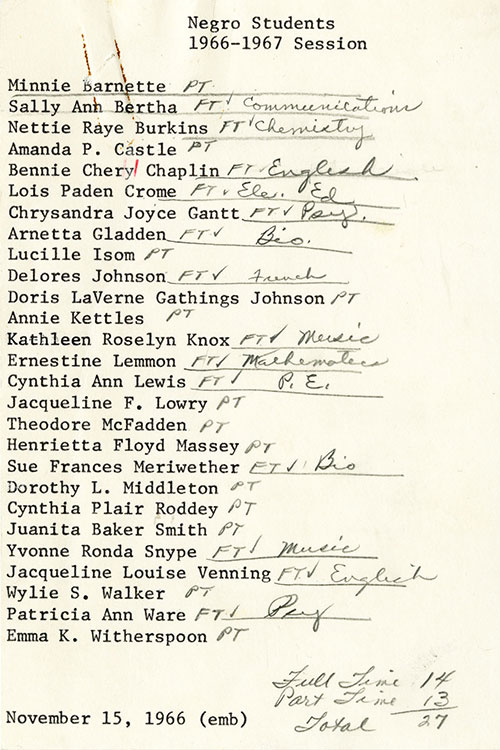 Negro Students
1966-1967 Session
Minnie Barnette PT
Sally Ann Bertha FT✓ Communications
Nettie Raye Burkins FT✓ Chemistry
Amanda P. Castle PT
Bennie Chery/ Chaplin FT✓ English
Lois Paden Crome FT✓ Ele. Ed
Chrysandra Joyce Gantt FT✓ Psy.
Arnetta Gladden FT✓ Bio.
Lucille Isom PT
Delores Johnson FT✓ French
Doris LaVerne Gathings Johnson PT
Annie Kettles PT
Kathleen Roselyn Knox FT✓ Music
Ernestine Lemmon FT✓ Mathematics
Cynthia Ann Lewis FT✓ P.E.
Jacqueline F. Lowry PT
Theodore McFadden PT
Henrietta Floyd Massey PT
Sue Frances Meriwether FT✓ Bio
Dorothy L. Middleton PT
Cynthia Plair Roddey PT
Juanita Baker Smith PT
Yvonne Ronda Snype FT✓ Music
Jacqueline Louise Venning FT✓ English
Wylie S. Walker PT
Patricia Ann Ware FT✓ Psy
Emma K. Witherspoon PT
Full Time 14
Part Time 13
Total 27
November 15, 1966 (emb)